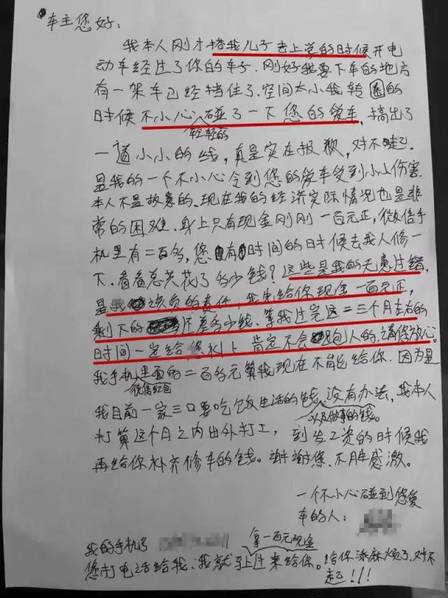 车主您好:
我本人刚才搭我儿子去上学的时候开电
动车经过了你的车子.刚好我要下车的地方
有一架车已经挡住了.空间太小我转圈的
时候不小心碰了一下您的爱车,搞出了
轻轻的
一道小小的线,真是实在报歉,对不起了
是我的一个不小心令到您的爱车受到小小伤害.
本人不是故意的.现在我的经济实际情况也是非
常的困难.身上只有现金刚刚一百元正,微信手
机里有二百多,您有时间的时候去找人修一
下.看看总共花了多少钱?这些是我的无意过错,
是我该负的责任.我先给你现金一百元正,
剩下的差多少钱.等我过完这二三个月左右的
时间一定给您补上 肯定不会跑人的.请您放心.
我手机里面的二百多元算我现在不能给你.因为里
微信红包
我目前一家三口要吃饭生活的钱,没有办法,我本人
以及做事的钱。
打算这个月之内出外打工,到发工资的时候我
再给你补齐修车的钱。谢谢您.不用感激。
一个不小心碰到您爱
车的人:
我的手机了
拿一百元现金
您打电话给我.我就马上过来给你。给你添麻烦了.对不
起!!!